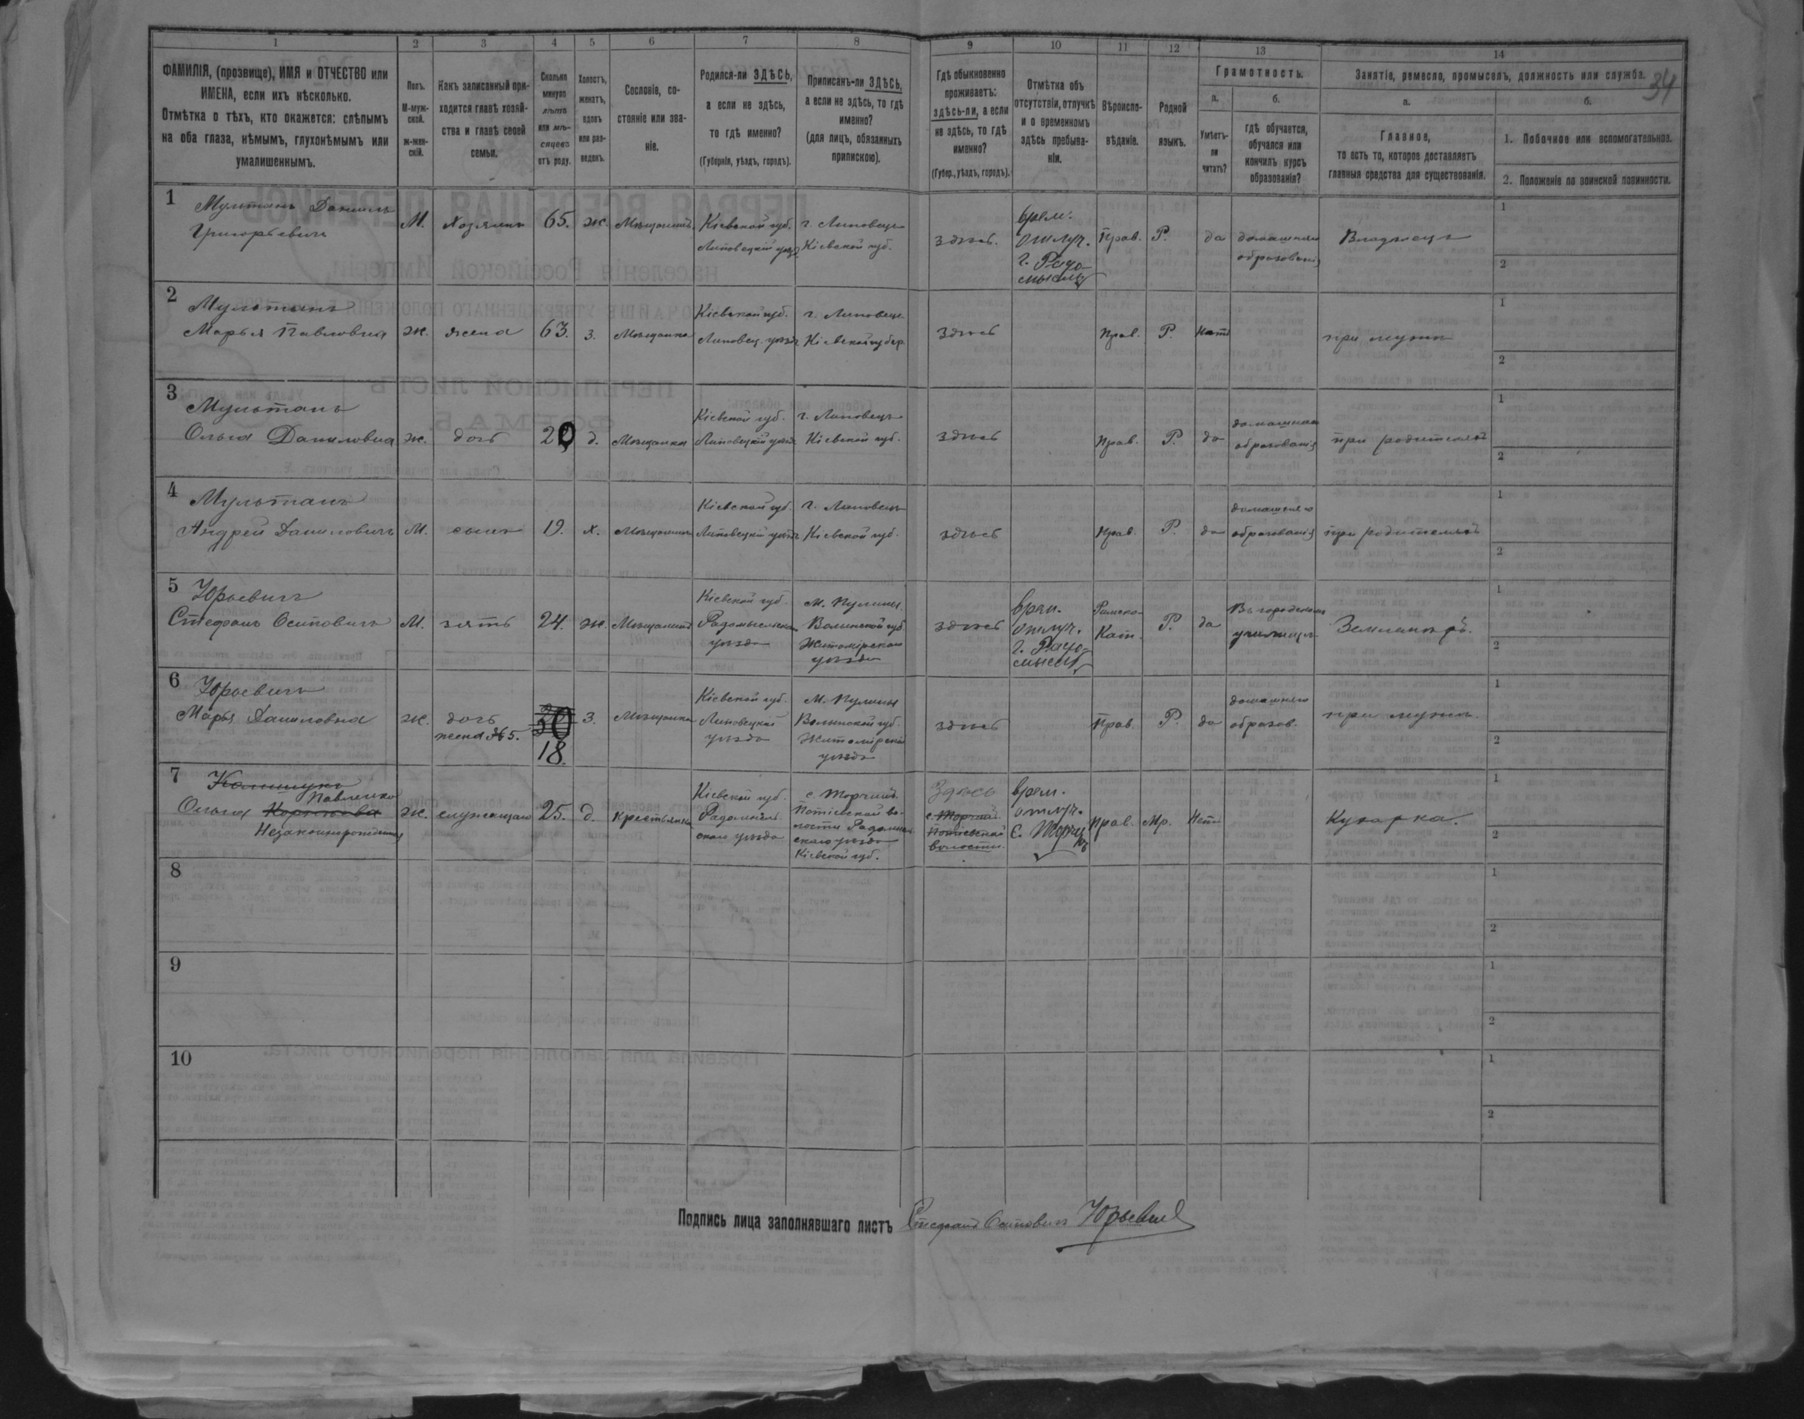 34
1 2 3 4 5 6 7 8 9 10 11 12 13 14
ФАМИЛІЯ, (прозвище), ИМЯ и ОТЧЕСТВО или
ИМЕНА, если ихъ нѣсколько.
Отмѣтка о тѣхъ, кто окажется: слѣпымъ
на оба глаза, нѣмымъ, глухонѣмымъ или
умалишеннымъ.
Полъ.
М-муж-
ской.
Ж-жен-
скій.
Какъ записанный при-
ходится главѣ хозяй-
ства и главѣ своей
семьи.
Сколько
минуло
лѣтъ
или мѣ-
сяцевъ
отъ роду.
Холостъ,
женатъ,
вдовъ
или раз-
веденъ.
Сословіе, со-
стояніе или зва-
ніе.
Родился-ли ЗДѢСЬ,
а если не здѣсь,
то гдѣ именно?
(Губернія, уѣздъ, городъ).
Приписанъ-ли ЗДѢСЬ,
а если не здѣсь, то гдѣ
именно?
(для лицъ, обязанныхъ
припискою).
Гдѣ обыкновенно
проживаетъ:
здѣсь-ли, а если
не здѣсь, то гдѣ
именно?
(Губер., уѣздъ, городъ).
Отмѣтка объ
отсутствіи, отлучкѣ
и о временномъ
здѣсь пребыва-
ніи.
Вѣроиспо-
вѣданіе.
Родной
языкъ.
Грамотность.
а.
Умѣетъ-
ли
читать?
б.
гдѣ обучается,
обучался или
кончилъ курсъ
образованія?
Занятіе, ремесло, промыселъ, должность или служба.
а.
Главное,
то есть то, которое доставляетъ
главныя средства для существованія.
б.
1. Побочное или вспомогательное.
2. Положеніе по воинской повинности.
1
Мультанъ Даніилъ
Григорьевичъ
М. Хозяинъ 65. ж. Мѣщанинъ
Кіевской губ.
Липовецкій уѣзд
г. Липовецъ
Кіевской губ.
здѣсь.
врем.
отлуч.
г. Радо-
мысль
Прав. Р. да
домашняго
образованія
Владѣлецъ
1
2
2
Мультанъ
Марья Павловна ж. жена 63. з. Мѣщанка
Кіевской губ.
Липовец. уѣзд
г. Липовецъ
Кіевской губер
здѣсь Прав. Р. Нѣтъ при мужѣ
1
2
3
Мультанъ
Ольга Даниловна ж. дочь 20 д. Мѣщанка
Кіевской губ.
Липовецкій уѣзд
г. Липовецъ
Кіевской губ.
здѣсь Прав. Р. да
домашняго
образованія
при родителяхъ
1
2
4
Мультанъ
Андрей Даниловичъ М. сынъ 19. х. Мѣщанинъ
Кіевской губ
Липовецкій уѣзд
г. Липовецъ
Кіевской губ.
здѣсь Прав. Р. да
домашняго
образованія
при родителяхъ
1
2
5
Юрьевичъ
Стефанъ Осиповичъ М. зять 24. ж. Мѣщанинъ
Кіевской губ.
Радомысльскаго
уѣзда
М. Пулины
Волынской губ
Житомірскаго
уѣзда
здѣсь
врем.
отлуч.
г. Радо-
мысль
Римско-
Кат.
Р. да
Въ городскомъ
училищѣ
Землемѣръ.
1
2
6
Юрьевичъ
Марья Даниловна ж. дочь
жена №5.
18. з. Мѣщанка
Кіевской губ.
Липовецкой
уѣзда
М. Пулины
Волынской губ.
Житомірскаго
уѣзда
здѣсь Прав. Р. да
домашняго
образов.
при мужѣ
1
2
7
Павленко
Ольга
Незаконнорожденная
ж. служащая 25. д. Крестьянка
Кіевской губ.
Радомысль-
скаго уѣзда
с. Торчинъ
Потіевской во-
лости Радомысль
скаго уѣзда
Кіевской губ.
Здѣсь
с. Торчинъ
Потіевской
волости
врем.
отлуч.
с. Торчи
нъ
Прав. Мр. Нѣтъ Кухарка.
1
2
8
1
2
9
1
2
10
1
2
Подпись лица заполнявшаго листъ Стефанъ Осиповичъ Юрьевичъ